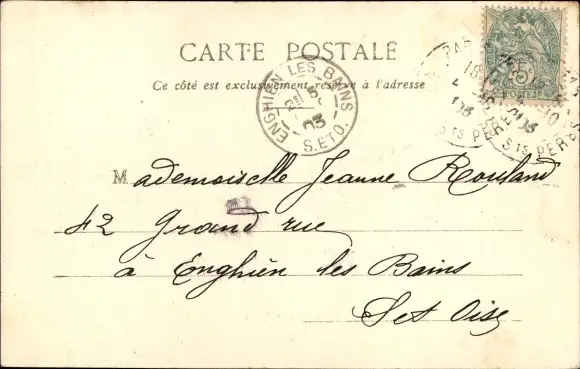 CARTE POSTALE
Ce côté est exclusivement réservé à l'adresse
ENGHIEN LES BAINS
03
S. ET O.
POSTES
Mademoiselle Jeanne Rouland
42 Grand rue
à Enghien les Bains
S et Oise